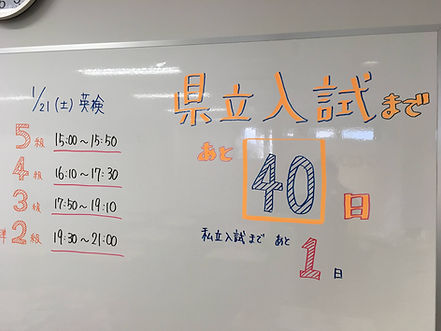 1/21(土)英検
5級 15:00～15:50
4級 16:10～17:30
3級 17:50～19:10
準2級 19:30～21:00
県立入試まで
あと
40
日
私立入試まで あと
1日